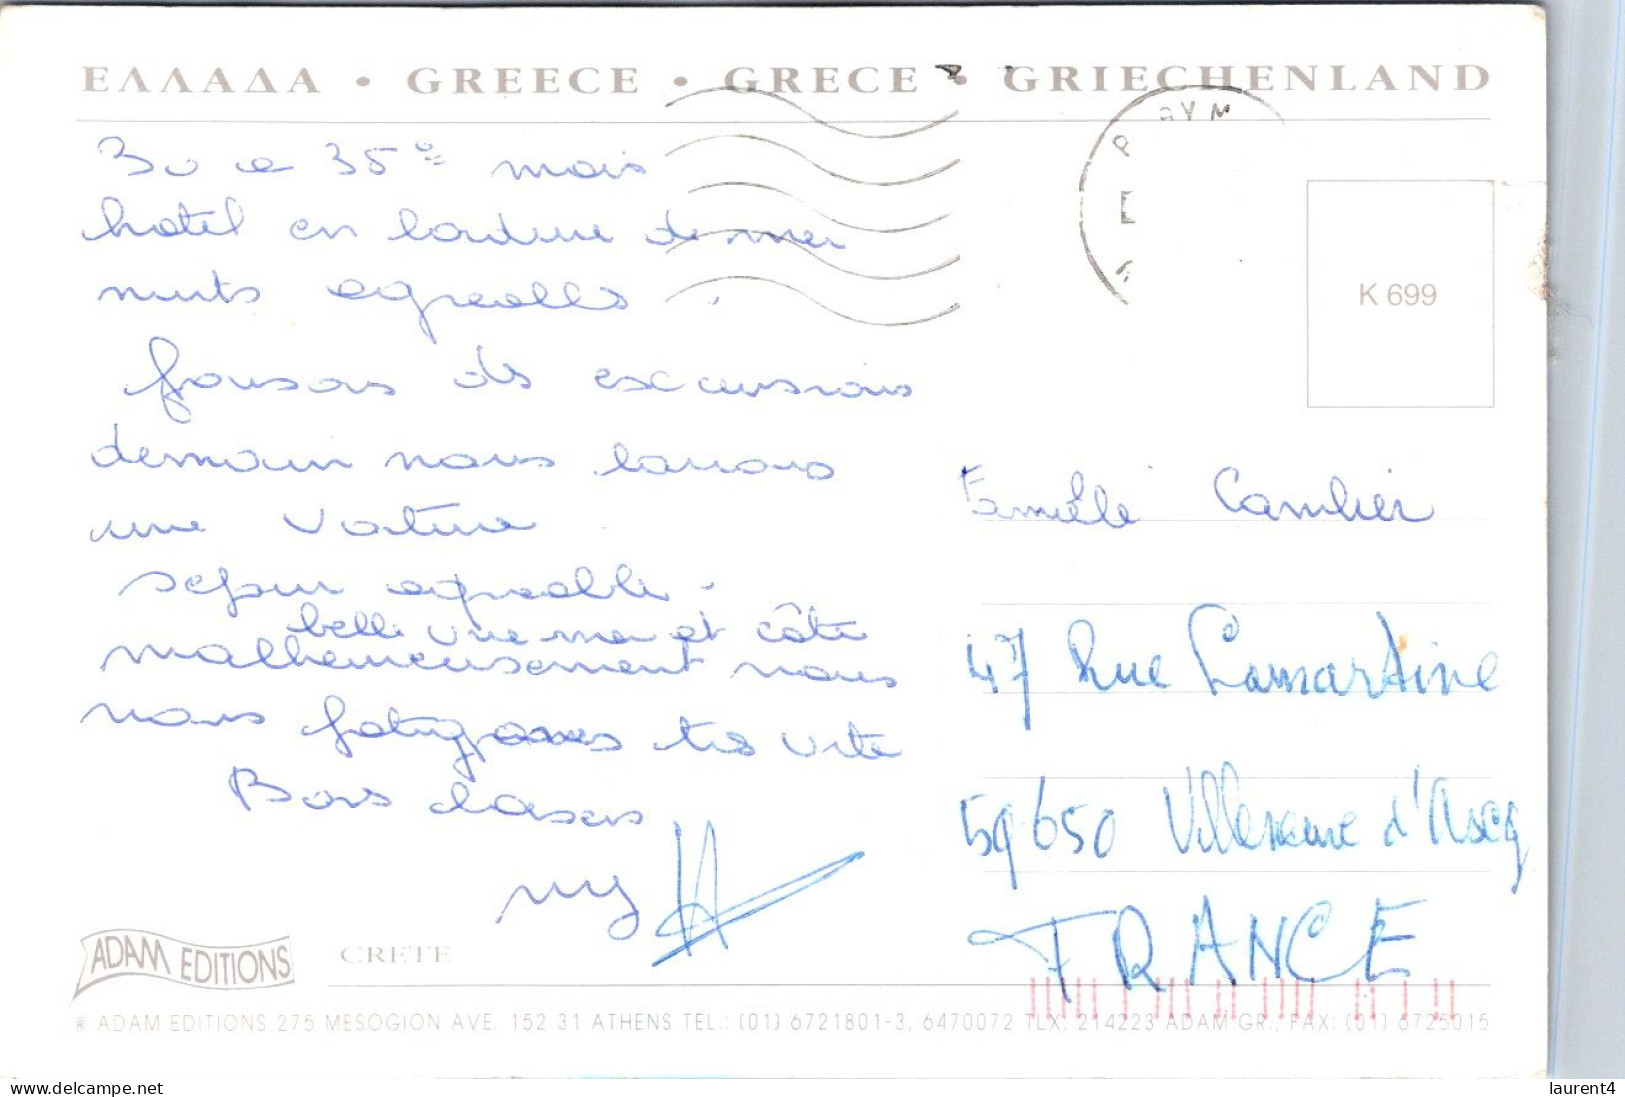 ΕΛΛΑΔΑ • GREECE • GRECE • GRIECHENLAND
30 a 35° mais
hotel en bordure de mer
nuits agreables.
faisons des excursions
demain nous louons
une voiture
sejour agreable.
belle vue mer et côte
malheureusement nous
nous fatigons très vite
Bons baisers
K 699
Famille Cambier
47 Rue Lamartine
59650 Villeneuve d'Ascq
FRANCE
ADAM EDITIONS
CRETE
* ADAM EDITIONS 275 MESOGION AVE. 152 31 ATHENS TEL.: (01) 6721801-3, 6470072 TLX: 214223 ADAM GR., FAX: (01) 6725015
www.delcampe.net
laurent4